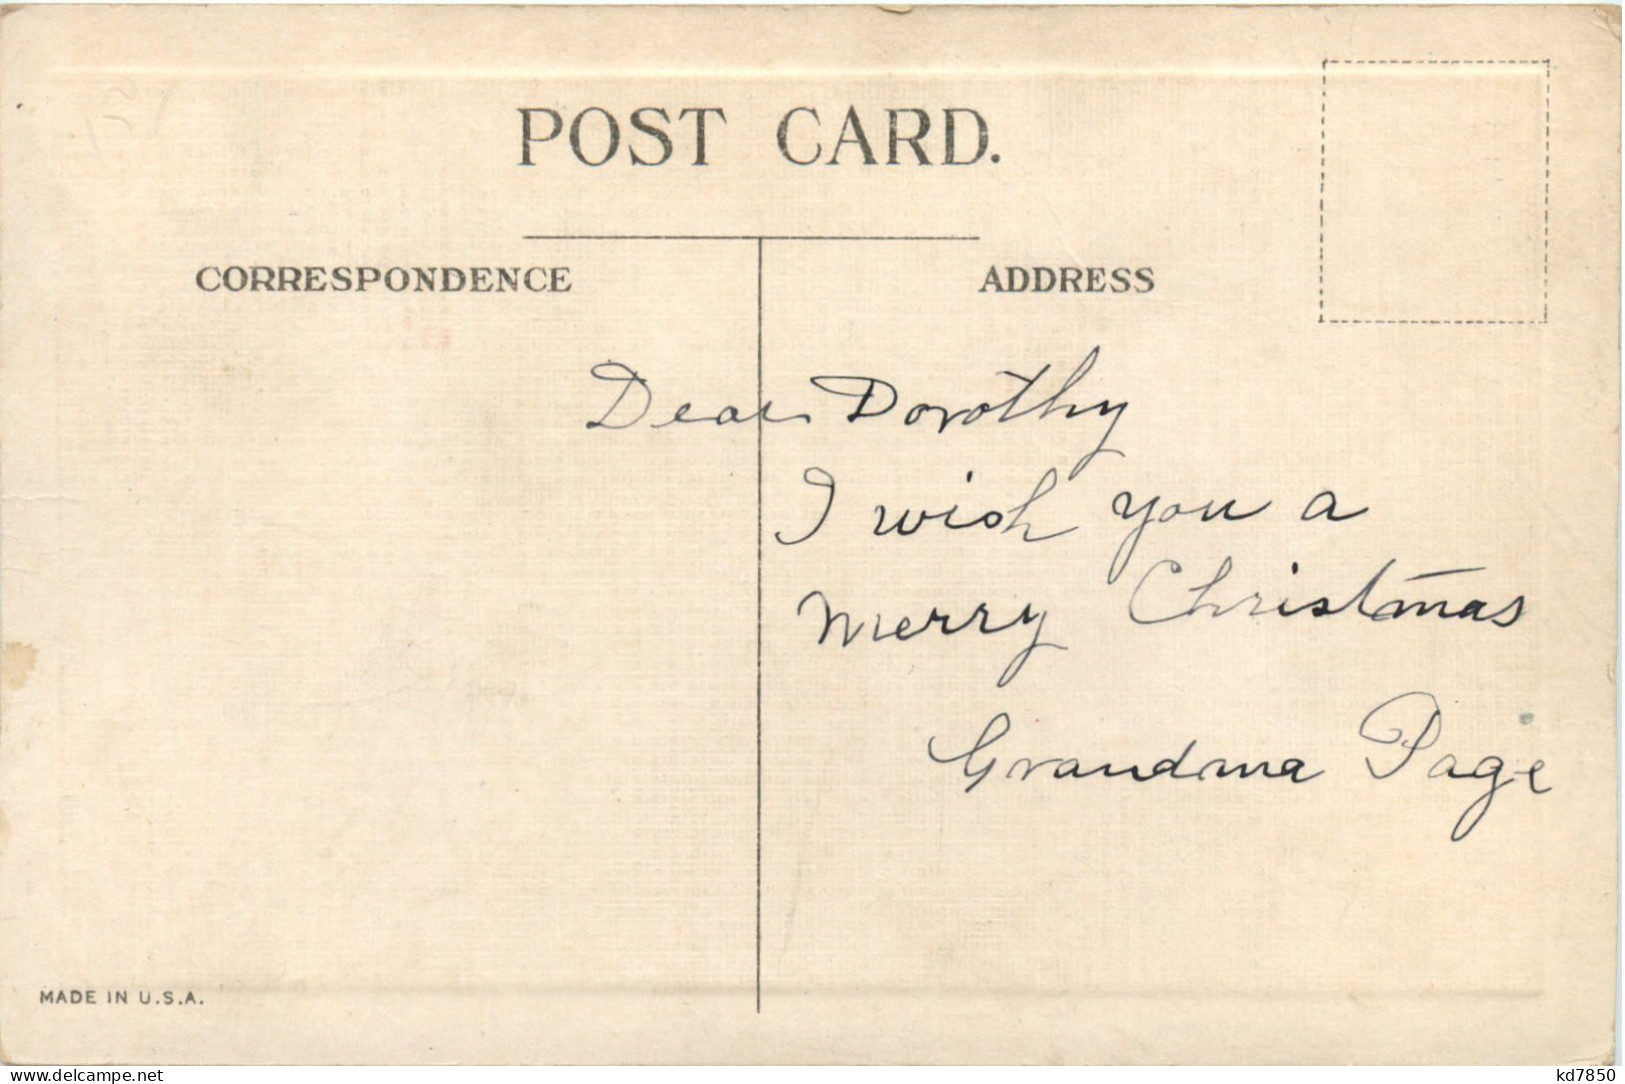 POST CARD.
CORRESPONDENCE
ADDRESS
Dear Dorothy
I wish you a
Merry Christmas
Grandma Page
MADE IN U.S.A.
kd7850